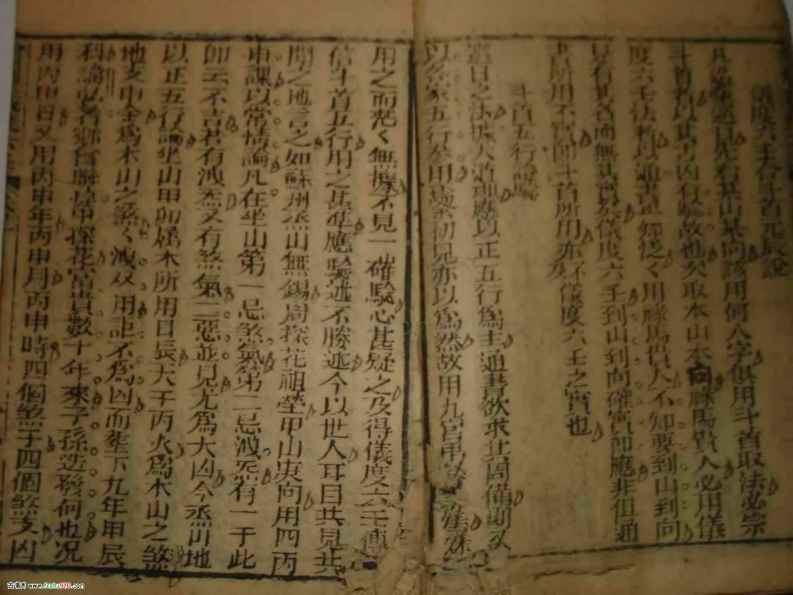 儀度六壬合斗首元辰說
凡選擇造日先看某山某向該用何八字俱用斗首取法必宗
斗首者以其吉凶有驗故也至取本山本向祿馬貴人必用儀
度六壬法者以通書止知泛〻用祿馬貴人不知要到山到向
見有其名而無其實於儀度六壬到山到向確實即應非但通
書所用不實即斗首所用亦不儀度六壬之實也
斗首五行說驗
選日之法據大道理應以正五行為主通書欲求其周備則又
以各家五行參用
初見亦以為然故用九宮甲
用之而茫〻無據不見一確驗心甚疑之及得儀度六壬傳
信斗首五行用之甚準應驗述不勝述今以世人耳目共見共
聞之地言之如蘇州烝山無錫周探花祖塋甲山庚向用四丙
申課以常情論凡在坐山第一忌煞氣第二忌洩炁有一于此
師云不吉若有洩炁又有煞氣二惡並見尤為大凶今烝山地
以正五行論坐山甲卯屬木所用日辰天干丙火為木山之煞
地支申金為木山之煞〻洩双用詎不為凶而塟下九年甲辰
科諭弘者鄉會聯捷甲探花富貴數十年來子孫造發何也况
用丙申日又用丙申年丙申月丙申時四個煞干四個煞支凶
古籍網 www.